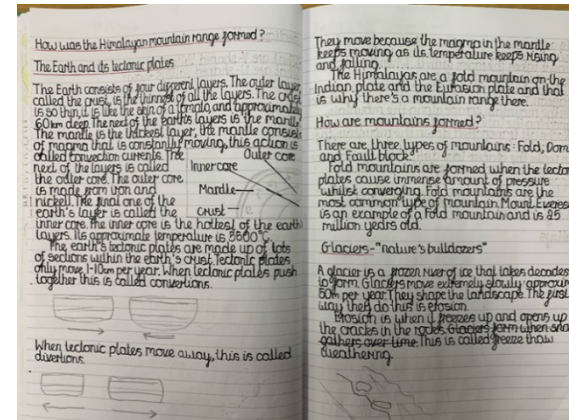 How was the Himalayan mountain range formed?
The Earth and its tectonic plates
The Earth consists of four different layers. The outer layer
called the crust, is the thinnest of all the layers. The crust
is so thin it is like the skin of a tomato and approximately
60km deep. The next of the earth's layers is the mantle.
The mantle is the thickest layer, the mantle consists
of magma that is constantly moving, this action is
called convection currents. The
next of the layers is called
the outer core. The outer core
is made from iron and
nickell. The final one of the
earth's layer is called the
Outer core
Inner core
Mantle
Crust
inner core. The inner core is the hottest of the earth
layers. Its approximate temperature is 5500°C.
The earth's tectonic plates are made up of lots
of sections within the earth's crust. Tectonic plates
only move 1-10cm per year. When tectonic plates push
together this is called convertions.
When tectonic plates move away, this is called
divertions.
They move because the magma in the mantle
keeps moving as its temperature keeps rising
and falling.
The Himalayas are a fold mountain on the
Indian plate and the Eurasion plate and that
is why there's a mountain range there.
How are mountains formed?
There are three types of mountains: Fold, Dom
and Fault block.
Fold mountains are formed when the tector
plates cause immense amount of pressure
whilst converging. Fold mountains are the
most common type of mountain. Mount Everes
is an example of a Fold mountain and is 25
million years old.
Glaciers-"nature's bulldozers"
A glacier is a frozen river of ice that takes decades
to form. Glaciers move extremely slowly approxir
50m per year. They shape the landscape. The first
way they do this is erosion.
Erosion is when it freezes up and opens up
the cracks in the rocks. Glaciers form when sno
gathers over time. This is called freeze thaw
weathering.